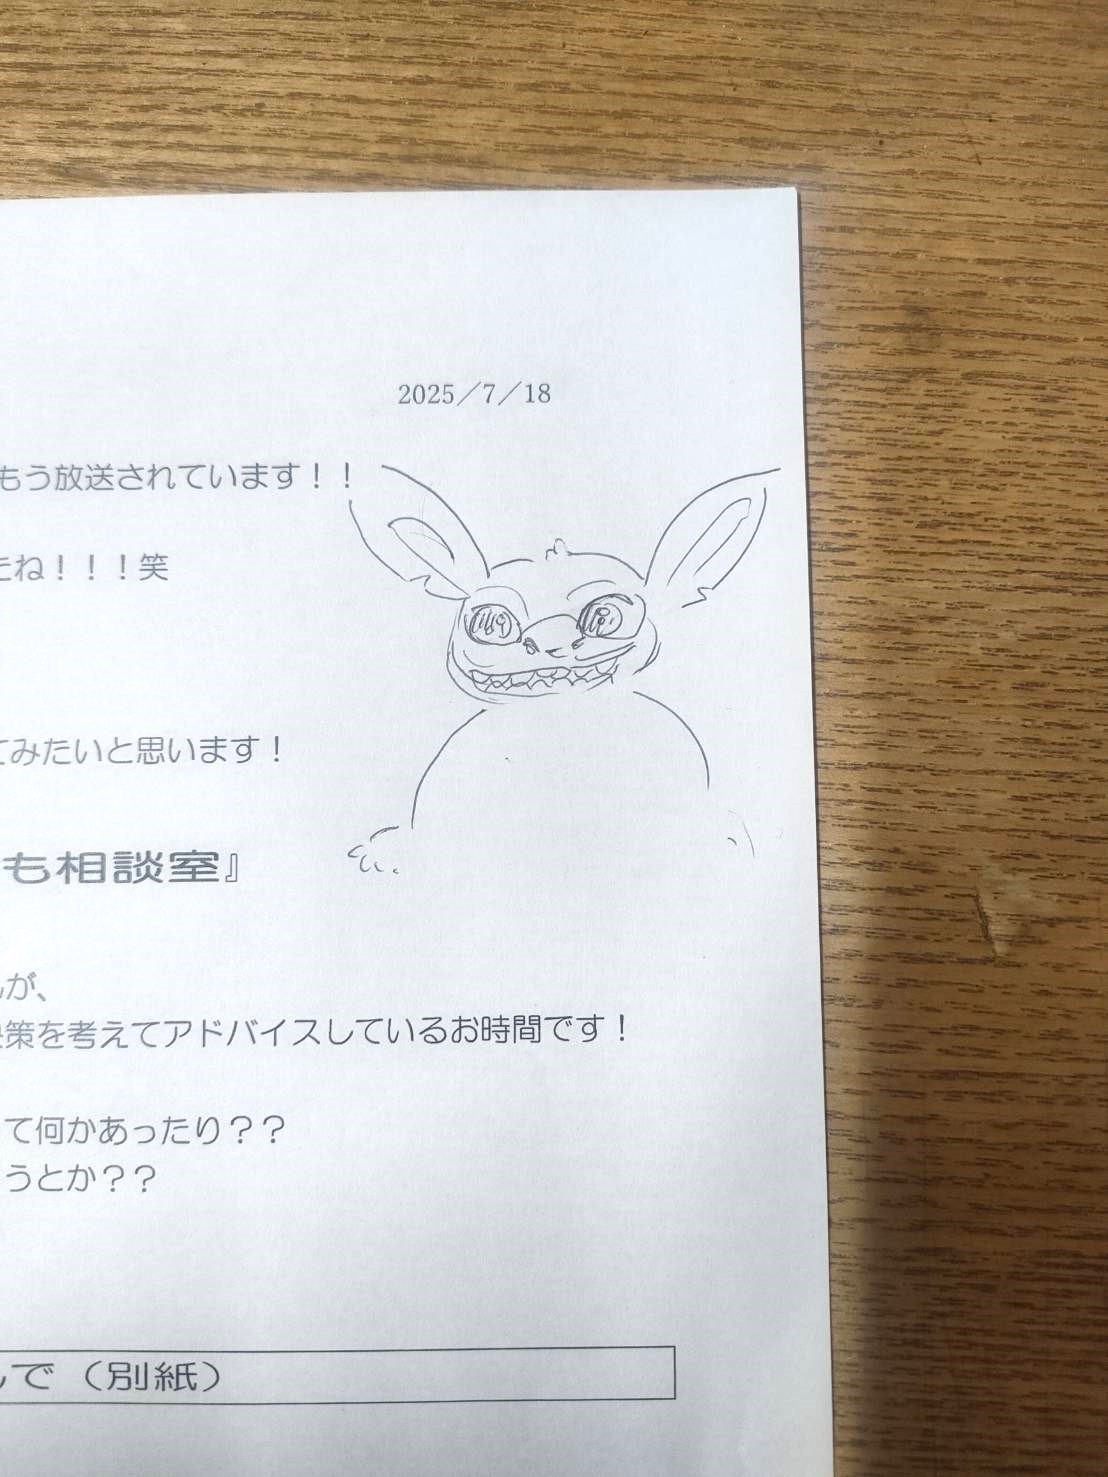 2025／7／18
もう放送されています！！
ね！！！笑
てみたいと思います！
も相談室』
が、
策を考えてアドバイスしているお時間です！
て何かあったり？？
うとか？？
で（別紙）